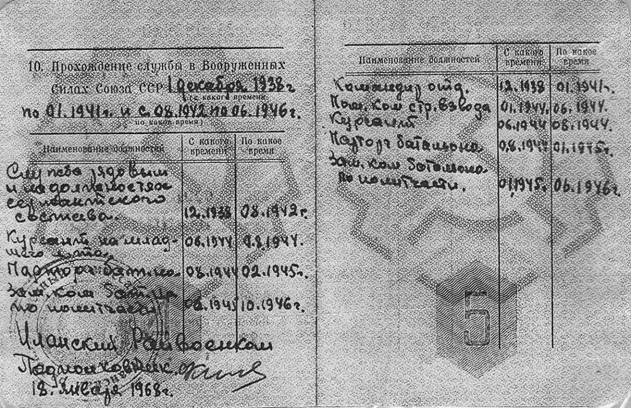 10. Прохождение службы в Вооруженных
Силах Союза ССР 1 декабря 1938г
(с какого времени
по 01.1941г. и с 08.1942 по 06.1946г.
по какое время)
Наименование должностей С какого времени По какое время
Служба рядовым
и на должностях
сержантского
состава. 12.1938 08.1942г.
Курсант на млад-
06.1944 08.1944.
Парторг бат-на 08.1944 02.1945г.
Зам. ком бат-на
по политчасти 10.1946г.
Иланский Райвоенком
Подполковник
18. января 1968г.
Наименование должностей С какого времени По какое время
Командир отд. 12.1938 01.1941г.
Пом. ком стр. взвода 01.1944 06.1944.
Курсант 06.1944 08.1944.
Парторг батальона 08.1944 01.1945г.
Зам. ком батальона
по политчасти. 01.1945 06.1946г
5